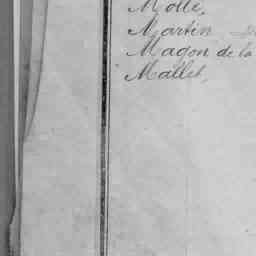 Molle,
Martin
Magon de la
Mallet,